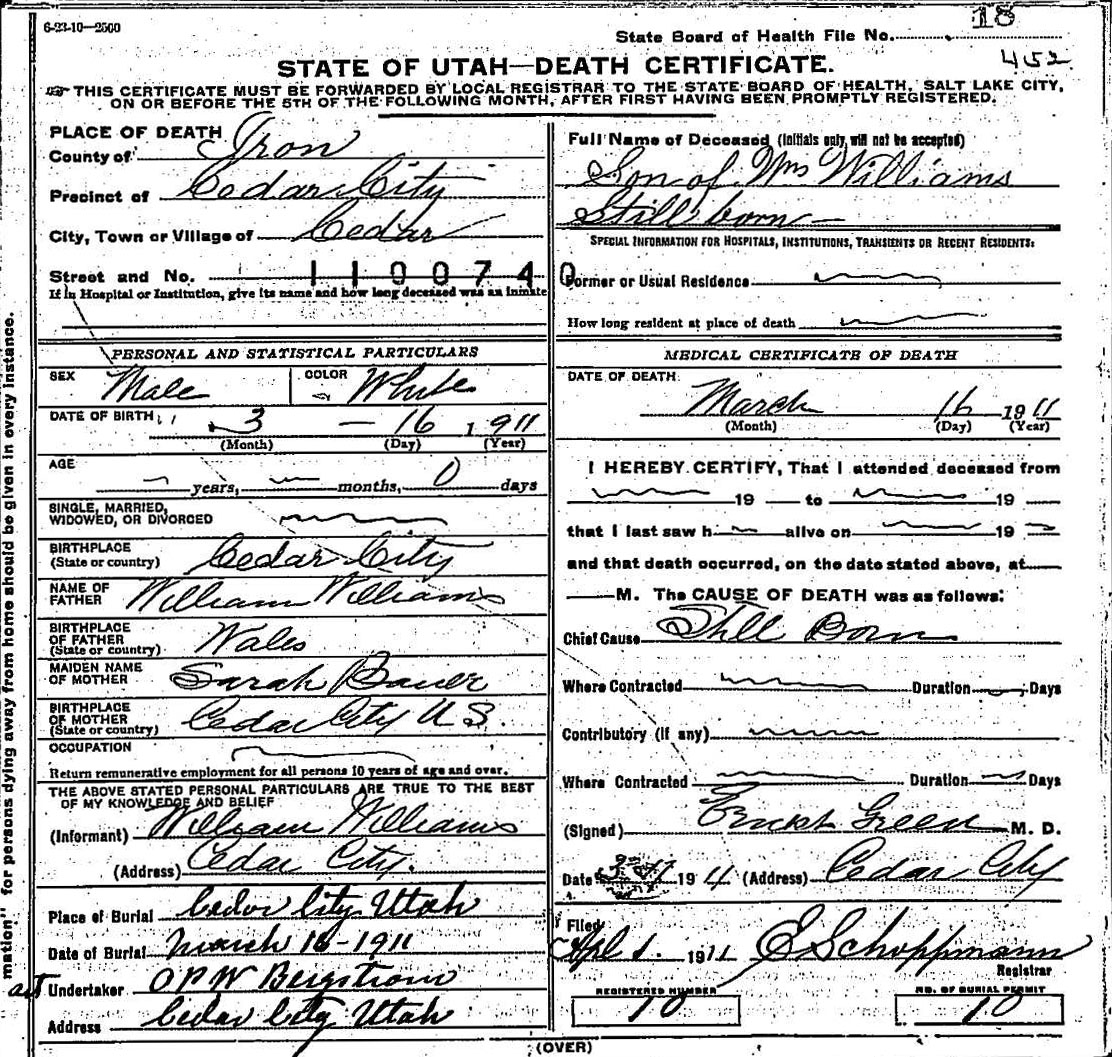 6-23-10—2500
18
State Board of Health File No.
452
STATE OF UTAH—DEATH CERTIFICATE.
THIS CERTIFICATE MUST BE FORWARDED BY LOCAL REGISTRAR TO THE STATE BOARD OF HEALTH, SALT LAKE CITY,
ON OR BEFORE THE 5TH OF THE FOLLOWING MONTH, AFTER FIRST HAVING BEEN PROMPTLY REGISTERED.
PLACE OF DEATH
County of Iron
Precinct of Cedar City
City, Town or Village of Cedar
Street and No. 1100740
If in Hospital or Institution, give its name and how long deceased was an inmate
PERSONAL AND STATISTICAL PARTICULARS
SEX Male COLOR White
DATE OF BIRTH 3 — 16 1911
(Month) (Day) (Year)
AGE
years, months, 0 days
SINGLE, MARRIED,
WIDOWED, OR DIVORCED
BIRTHPLACE
(State or country) Cedar City
NAME OF
FATHER William Williams
BIRTHPLACE
OF FATHER
(State or country) Wales
MAIDEN NAME
OF MOTHER Sarah Bauer
BIRTHPLACE
OF MOTHER
(State or country) Cedar City U.S.
OCCUPATION
Return remunerative employment for all persons 10 years of age and over.
THE ABOVE STATED PERSONAL PARTICULARS ARE TRUE TO THE BEST
OF MY KNOWLEDGE AND BELIEF
(Informant) William Williams
(Address) Cedar City.
Place of Burial Cedar City Utah
Date of Burial March 16-1911
Undertaker O P W Bergstrom
Address Cedar City Utah
Full Name of Deceased (Initials only will not be accepted)
Son of Wm Williams
Still born —
SPECIAL INFORMATION FOR HOSPITALS, INSTITUTIONS, TRANSIENTS OR RECENT RESIDENTS:
Former or Usual Residence
How long resident at place of death
MEDICAL CERTIFICATE OF DEATH
DATE OF DEATH
March 16 1911
(Month) (Day) (Year)
I HEREBY CERTIFY, That I attended deceased from
19 — to 19
that I last saw h alive on 19
and that death occurred, on the date stated above, at
M. The CAUSE OF DEATH was as follows:
Chief Cause Still Born
Where Contracted Duration Days
Contributory (if any)
Where Contracted Duration Days
(Signed) Ernest Green M. D.
Date 1911 (Address) Cedar City
Filed
Apl 1. 1911 E Schoppmann
Registrar
REGISTERED NUMBER
10
NO. OF BURIAL PERMIT
10
(OVER)
mation" for persons dying away from home should be given in every instance.